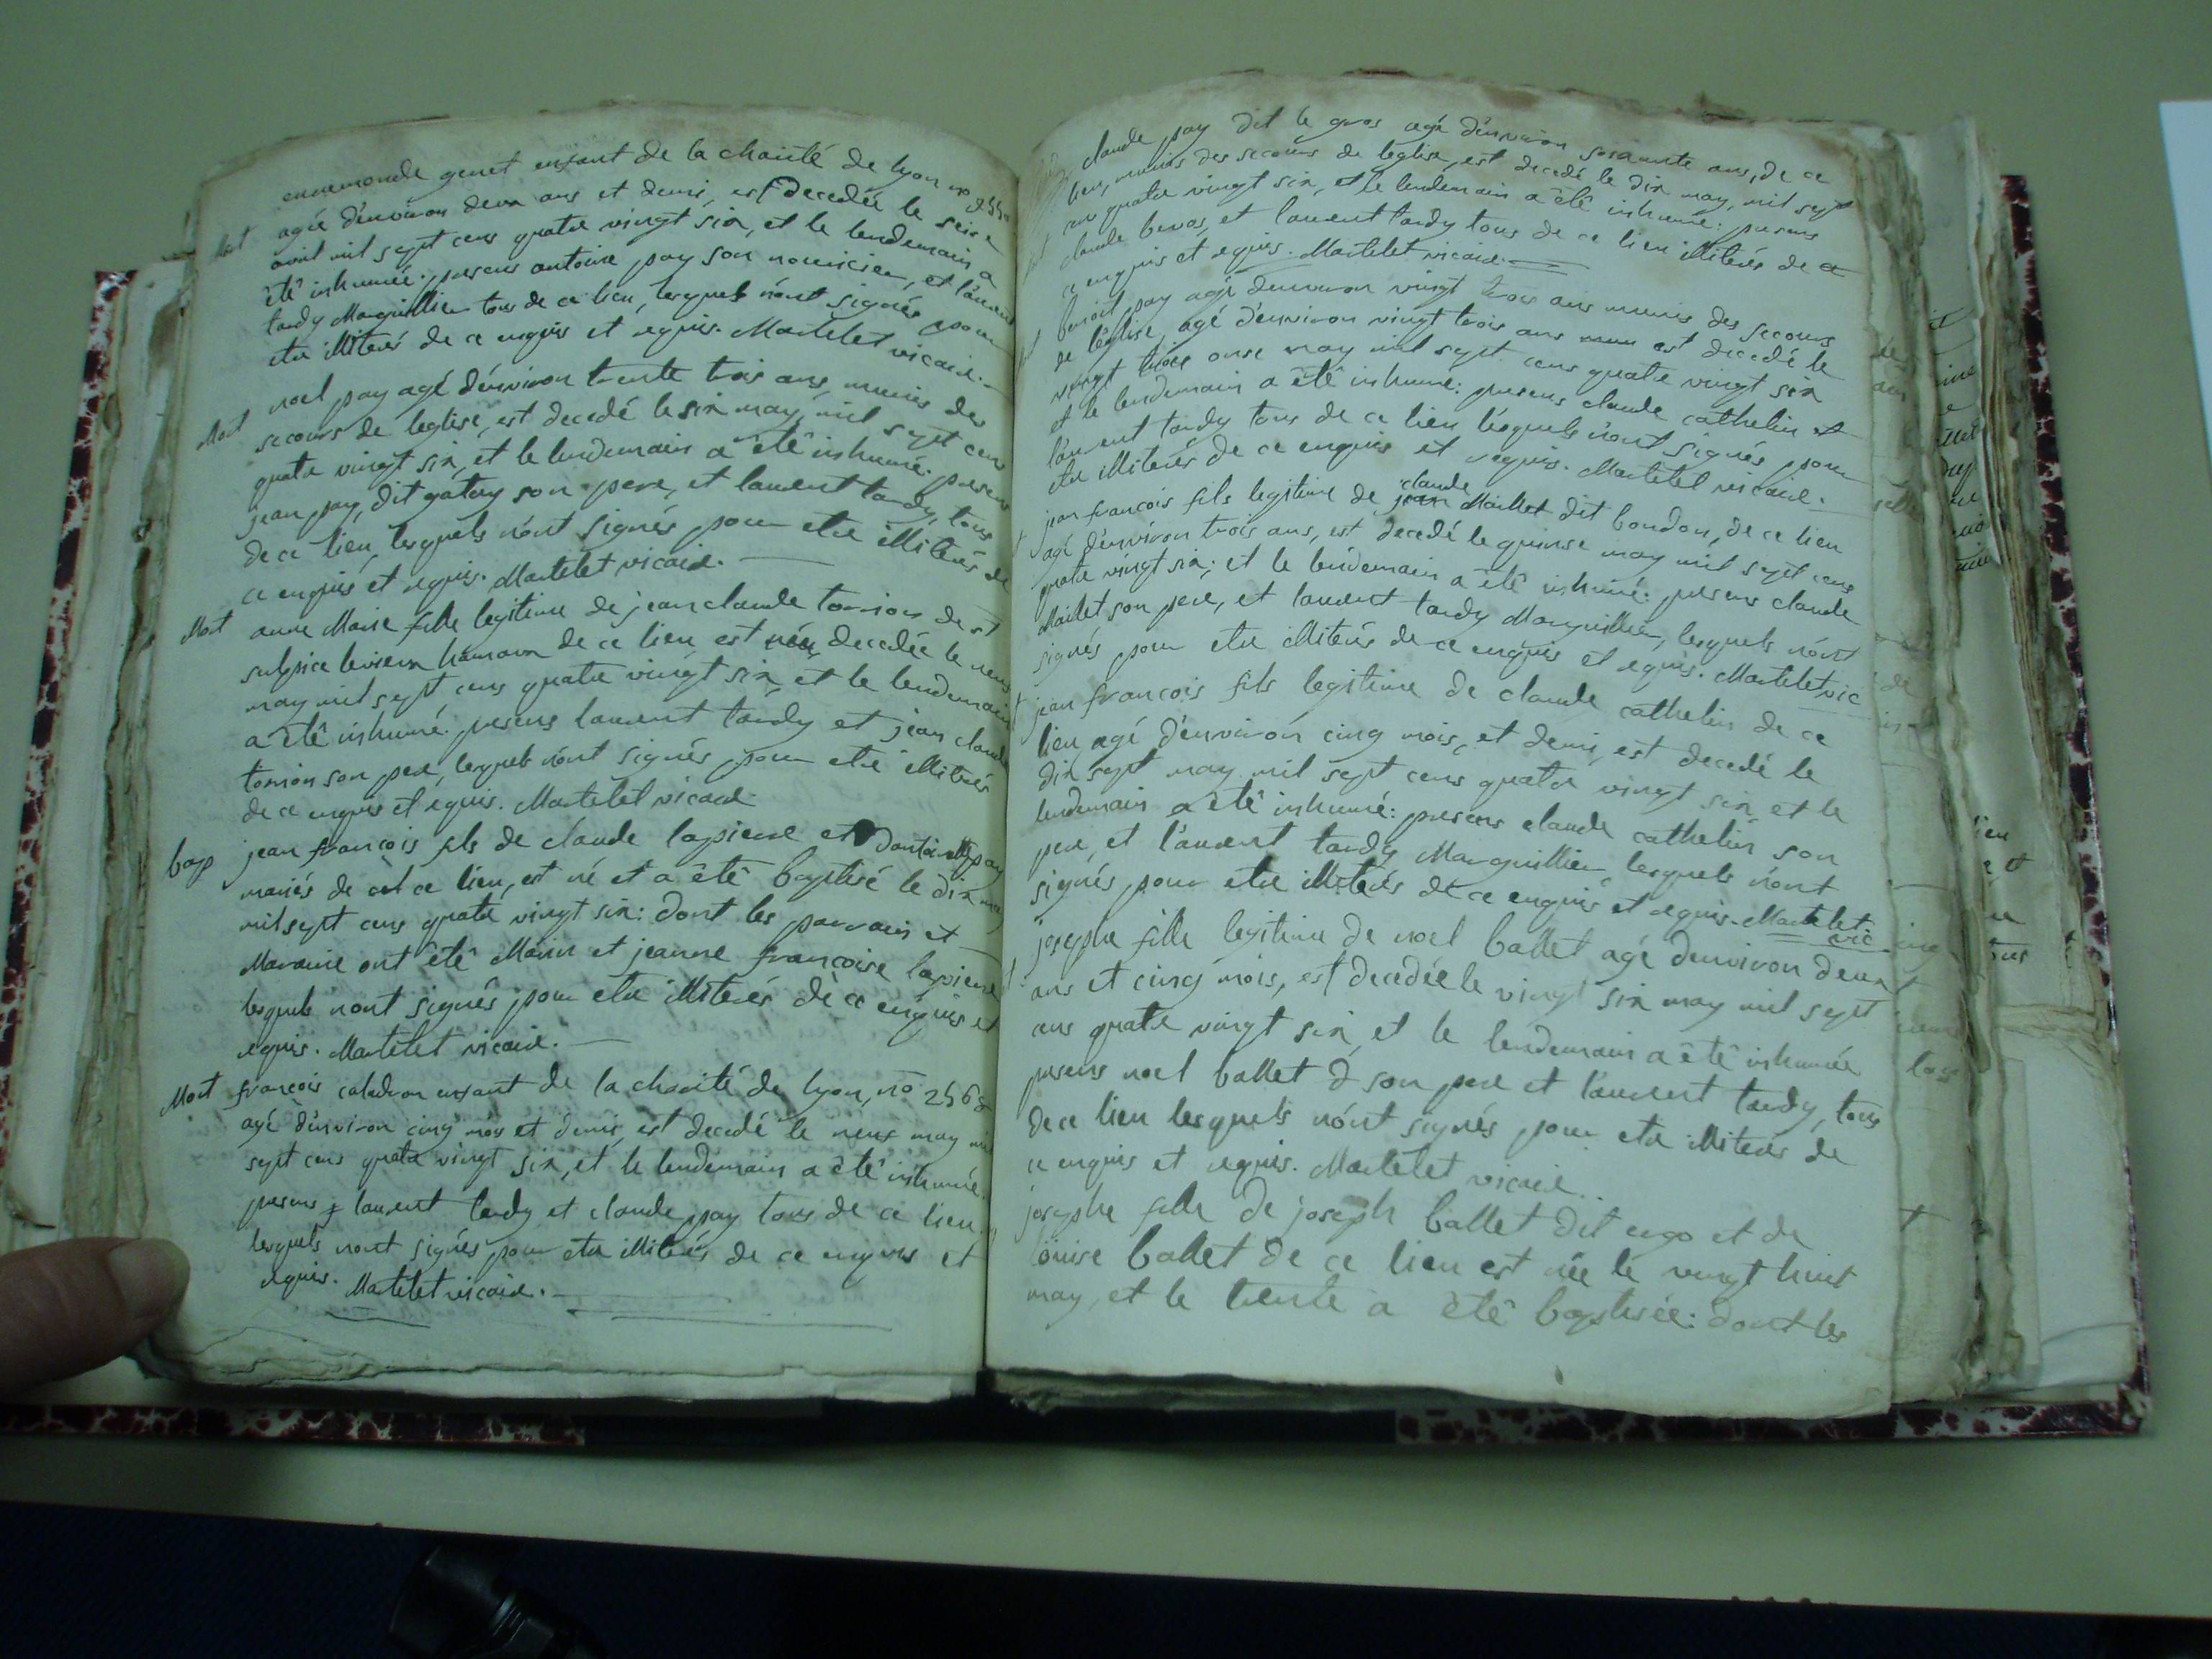 ennemonde genet enfant de la charité de lyon no
Mort agée d'environ deux ans et demi, est decedée le seise
avril mil sept cens quatre vingt six, et le lendemain a
été inhumée. presens antoine pay son nourricier, et laurent
tardy Marguillier tous de ce lieu, lesquels n'ont signés pour
etre illiterés de ce enquis et requis. Martelet vicaire.
Mort noel pay agé d'environ trente trois ans, munis des
secours de leglise, est decedé le six may mil sept cens
quatre vingt six, et le lendemain a été inhumé. presens
jean pay, dit gatay son pere, et laurent tardy, tous
de ce lieu, lesquels n'ont signés pour etre illiterés de
ce enquis et requis. Martelet vicaire.
Mort anne Marie fille legitime de jean claude tornion de st
sulpice hameaux de ce lieu, est decedée le neuf
may mil sept cens quatre vingt six, et le lendemain
a été inhumé. presens laurent tardy et jean claude
tornion son pere, lesquels n'ont signés pour etre illiterés
de ce enquis et requis. Martelet vicaire
bap jean françois fils de claude lapierre et pay
mariés de ce lieu, est né et a été baptisé le dix may
mil sept cens quatre vingt six: dont les parrain et
Maraine ont été et jeanne françoise lapierre
lesquels n'ont signés pour etre illiterés de ce enquis et
requis. Martelet vicaire.
Mort françois enfant de la charité de lyon, no
agé d'environ cinq mois et demis, est decedé le neuf may mil
sept cens quatre vingt six, et le lendemain a été inhumé.
presens laurent tardy et claude pay tous de ce lieu.
lesquels n'ont signés pour etre illiterés de ce enquis et
requis. Martelet vicaire.
claude pay dit le gros agé d'environ soixante ans, de ce
lieu, munis des secours de leglise, est decedé le dix may, mil sept
cens quatre vingt six, et le lendemain a été inhumé: presens
claude et laurent tardy tous de ce lieu illiterés de ce
ce enquis et requis. Martelet vicaire.
benoit pay agé d'environ vingt trois ans munis des secours
de leglise, agé d'environ vingt trois ans est decedé le
vingt trois onse may mil sept cens quatre vingt six
et le lendemain a été inhumé: presens claude cathelin et
laurent tardy tous de ce lieu lesquels n'ont signés pour
etre illiterés de ce enquis et requis. Martelet vicaire.
claude
jean françois fils legitime de jean Maillet dit bondon, de ce lieu
agé d'environ trois ans, est decedé le quinse may mil sept cens
quatre vingt six; et le lendemain a été inhumé: presens claude
Maillet son pere, et laurent tardy Marguillier, lesquels n'ont
signés pour etre illiterés de ce enquis et requis. Martelet vic
jean françois fils legitime de claude cathelin de ce
lieu agé d'environ cinq mois, et demi, est decedé le
dix sept may mil sept cens quatre vingt six, et le
lendemain a été inhumé: presens claude cathelin son
pere, et laurent tardy Marguillier, lesquels n'ont
signés pour etre illiterés de ce enquis et requis. Martelet
vic
josephe fille legitime de noel ballet agé d'environ deux
ans et cinq mois, est decedée le vingt six may mil sept
cens quatre vingt six, et le lendemain a été inhumée
presens noel ballet son pere et laurent tardy, tous
de ce lieu lesquels n'ont signés pour etre illiterés de
ce enquis et requis. Martelet vicaire.
josephe fille de joseph ballet dit et de
louise ballet de ce lieu est née le vingt huit
may, et le trente a été baptisée: dont les